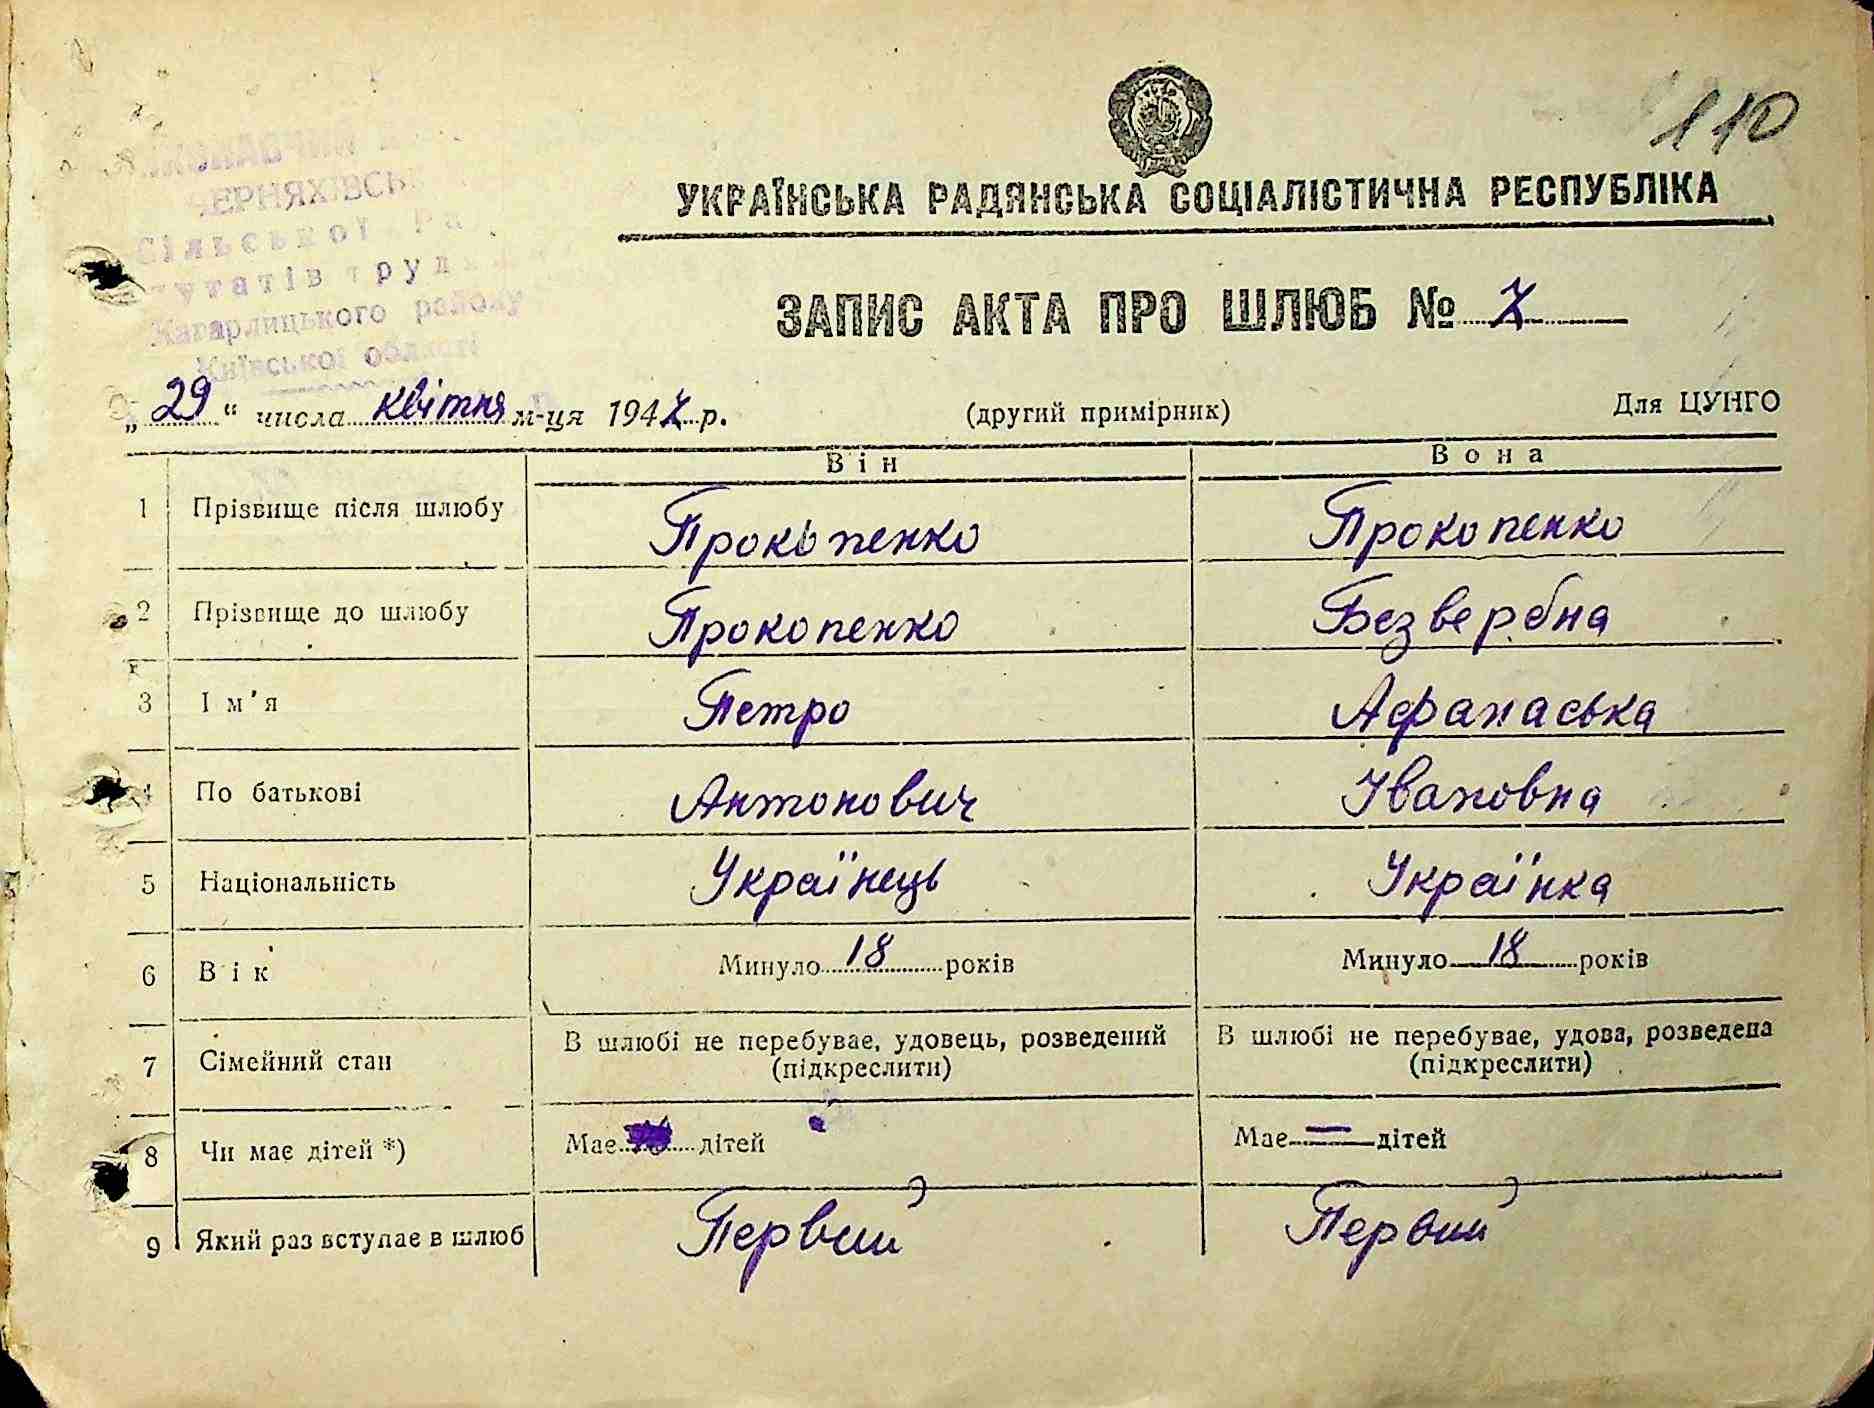 110
ЧЕРНЯХІВСЬК
Сільської Ра
путатів труд
Кагарлицького району
Київської області
УКРАЇНСЬКА РАДЯНСЬКА СОЦІАЛІСТИЧНА РЕСПУБЛІКА
ЗАПИС АКТА ПРО ШЛЮБ № 7
„29“ числа квітня м-ця 1947 р. (другий примірник) Для ЦУНГО
Він Вона
1 Прізвище після шлюбу Прокопенко Прокопенко
2 Прізвище до шлюбу Прокопенко Безвербна
3 Ім'я Петро Афанаська
4 По батькові Антонович Івановна
5 Національність Українець Українка
6 Вік Минуло 18 років Минуло 18 років
7 Сімейний стан В шлюбі не перебуває, удовець, розведений В шлюбі не перебуває, удова, розведена
(підкреслити) (підкреслити)
8 Чи має дітей *) Має дітей Має — дітей
9 Який раз вступає в шлюб Первий Первий